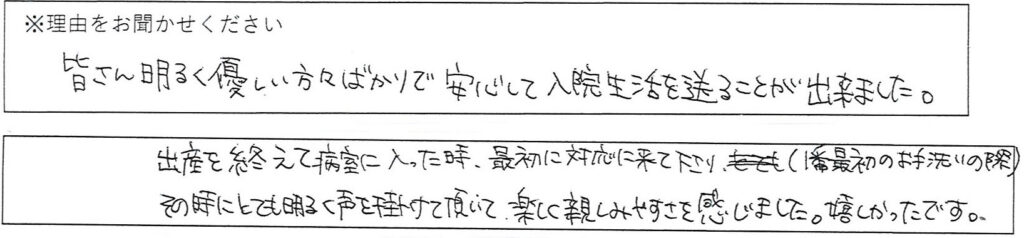 ※理由をお聞かせください
皆さん明るく優しい方々ばかりで安心して入院生活を送ることが出来ました。
出産を終えて病室に入った時、最初に対応に来て下さり、(1番最初のお手洗いの際)
その時にとても明るく声を掛けて頂いて、楽しく親しみやすさを感じました。嬉しかったです。